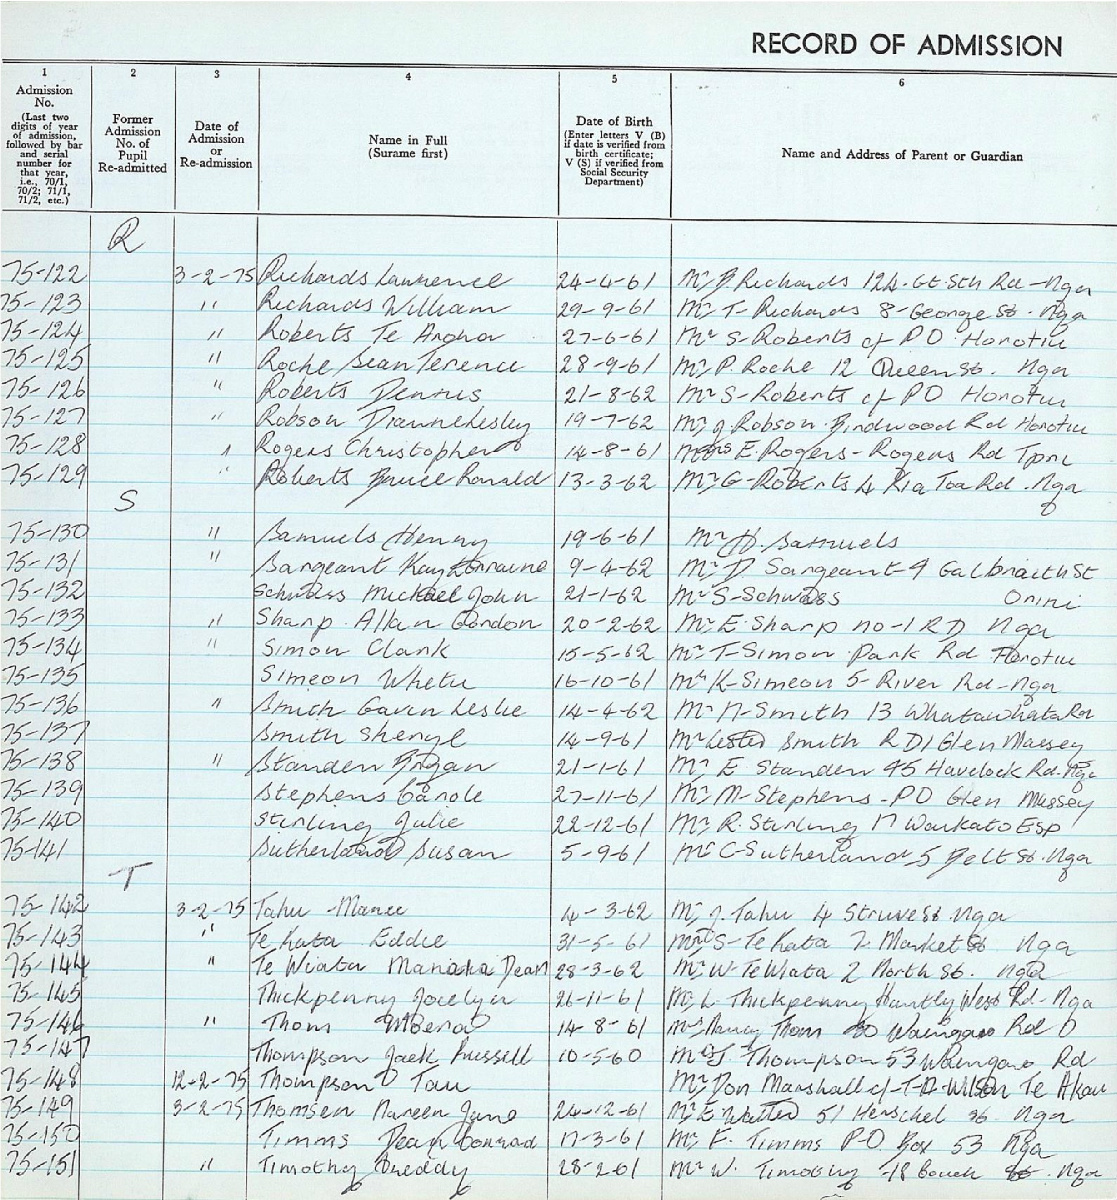 RECORD OF ADMISSION
1 2 3 4 5 6
Admission No. (Last two digits of year of admission, followed by bar and serial number for that year, i.e., 70/1, 70/2; 71/1, 71/2, etc.)
Former Admission No. of Pupil Re-admitted
Date of Admission or Re-admission
Name in Full (Surame first)
Date of Birth (Enter letters V (B) if date is verified from birth certificate; V (S) if verified from Social Security Department)
Name and Address of Parent or Guardian
R
75-122 3-2-75 Richards Lawrence 24-4-61 Mr Richards 124 Gt Sth Rd - Nga
75-123 " Richards William 29-9-61 Mr T- Richards 8- George St. Nga
75-124 " Roberts Te Aroha 27-6-61 Mr S-Roberts c/ PO Horotiu
75-125 " Roche Sean Terence 28-9-61 Mr P. Roche 12 Queen St. Nga
75-126 " Roberts Dennis 21-8-62 Mr S-Roberts c/ PO Horotiu
75-127 " Robson Dianne Lesley 19-7-62 Mr J Robson Birdwood Rd Horotiu
75-128 " Rogers Christopher 14-8-61 Mrs E Rogers- Rogers Rd
75-129 " Roberts Bruce Ronald 13-3-62 Mr G-Roberts 4 Kia Toa Rd. Nga
S
75-130 " Samuels Henry 19-6-61 Mr H. Samuels
75-131 " Sargeant Kay Lorraine 9-4-62 Mr D Sargeant 9 Galbraith St
75-132 Schwass Michael John 21-1-62 Mr S-Schwass Orini
75-133 " Sharp Allan Gordon 20-2-62 Mr E Sharp no-1 RD Nga
75-134 " Simon Clark 15-5-62 Mr T-Simon Park Rd Horotiu
75-135 Simeon Whetu 16-10-61 Mr K-Simeon 5- River Rd-Nga
75-136 " Smith Gavin Leslie 14-4-62 Mr N-Smith 13 Whatawhata Rd
75-137 Smith Sheryl 14-9-61 Mr Lester Smith R D1 Glen Massey
75-138 " Standen Bryan 21-1-61 Mr E Standen 45 Havelock Rd. Nga
75-139 Stephens Carole 27-11-61 Mr M-Stephens-PO Glen Massey
75-140 Stirling Julie 22-12-61 Mr R. Stirling 17 Waikato Esp
75-141 Sutherland Susan 5-9-61 Mr C-Sutherland 5 Belt St. Nga
T
75-142 3-2-75 Tahu 4-3-62 Mr J. Tahu 4 Struve St Nga
75-143 " Te Kata Eddie 31-5-61 Mrs S-Te Kata 2 Market St Nga
75-144 " Te Wiata Manaka Dean 28-3-62 Mr W-Te Wiata 2 North St. Nga
75-145 Thickpenny Jocelyn 26-11-61 Mr L. Thickpenny Huntly West Rd- Nga
75-146 " Thom Moera 14-8-61 Mrs Nancy Thom Waingaro Rd
75-147 Thompson Jack Russell 10-5-60 Thompson 53 Waingaro Rd
75-148 12-2-75 Thompson Tau Mr Don Marshall c/- Wilson Te Akau
75-149 3-2-75 Thomsen Nareen June 24-12-61 Mr E 51 Herschel St. Nga
75-150 Timms Dean Conrad 17-3-61 Mr F. Timms P-O Box 53 Nga
75-151 " Timothy Freddy 28-2-61 Mr W. Timothy -18 St. Nga